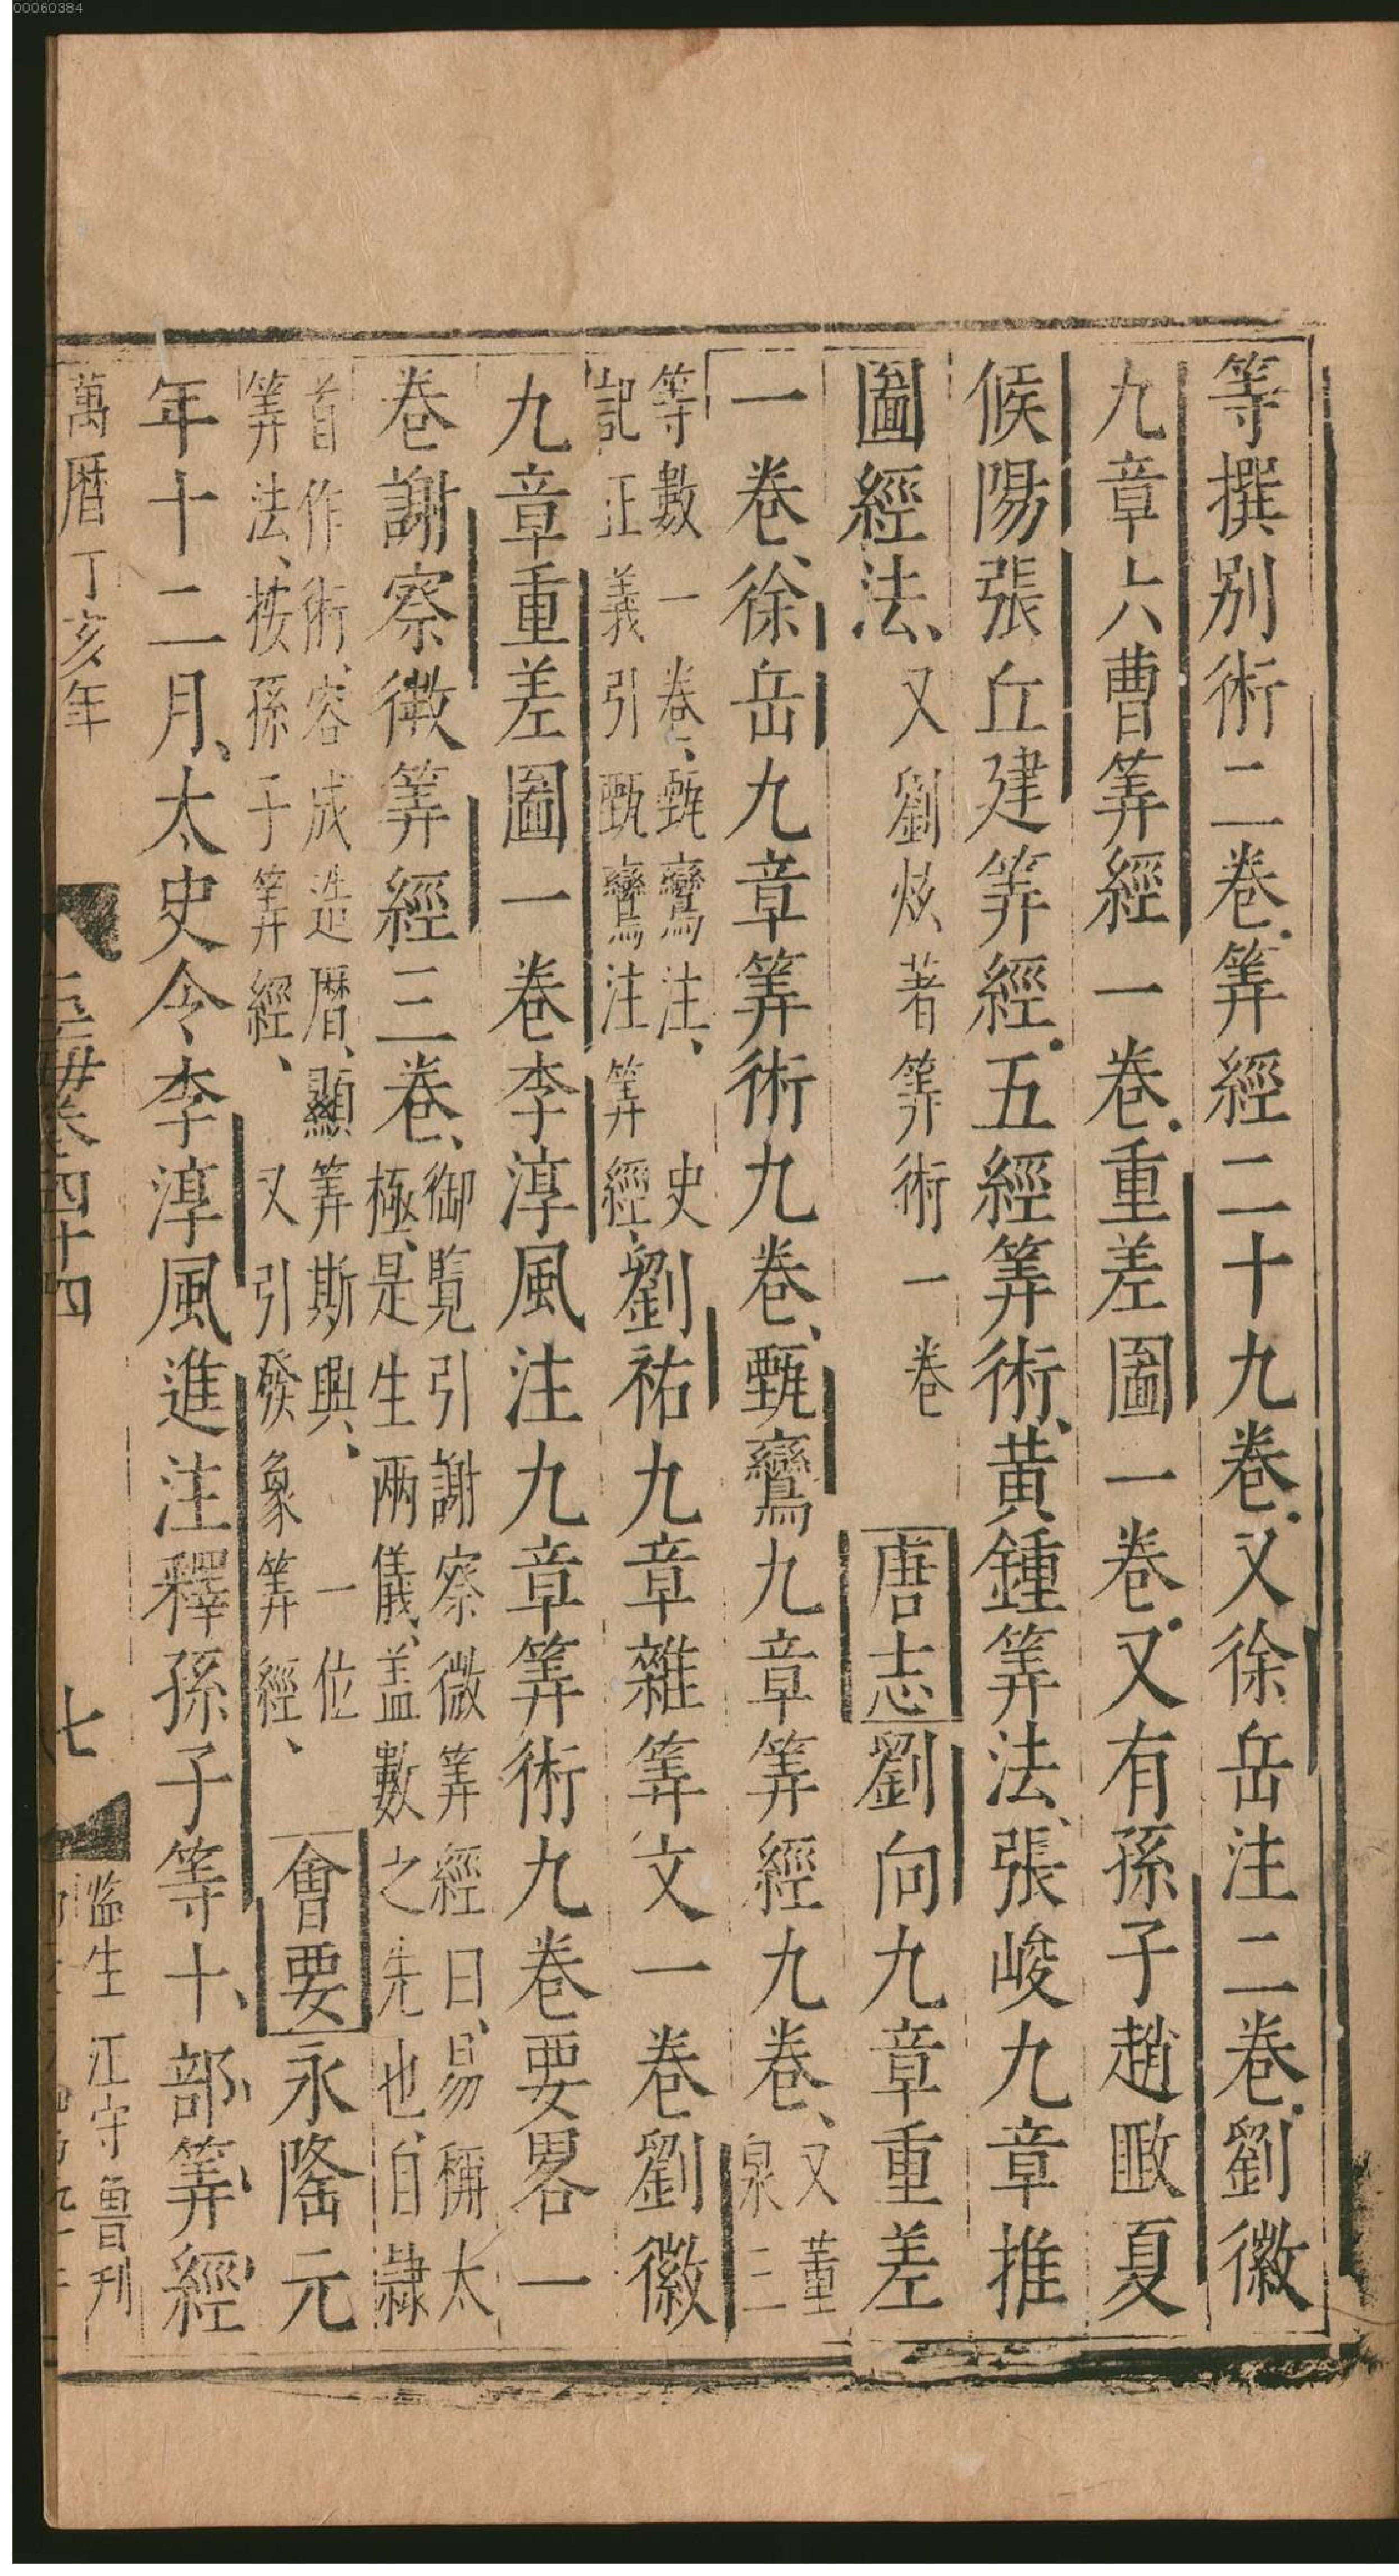 00060384
等撰别術二卷筭經二十九卷又徐岳注二卷劉徽
九章六曹筭經一卷重差圖一卷又有孫子趙𢾺夏
候陽張丘建筭經五經筭術黄鍾筭法張峻九章推
圖經法又劉炫著筭術一卷唐志劉向九章重差
一卷徐岳九章筭術九卷甄鸞九章筭經九卷又董泉三
等數一卷甄鸞注史記正義引甄鸞注筭經劉祐九章雜筭文一卷劉徽
九章重差圖一卷李淳風注九章筭術九卷要畧一
卷謝察微筭經三卷御覽引謝察微筭經曰易稱太極是生兩儀盖數之先也自隸
首作術容成造曆顯筭斯興一位筭法按孫子筭經又引發象筭經會要永隆元
年十二月太史令李淳風進注釋孫子等十部筭經
萬曆丁亥年 玉海卷四十四 七 監生江守魯刊